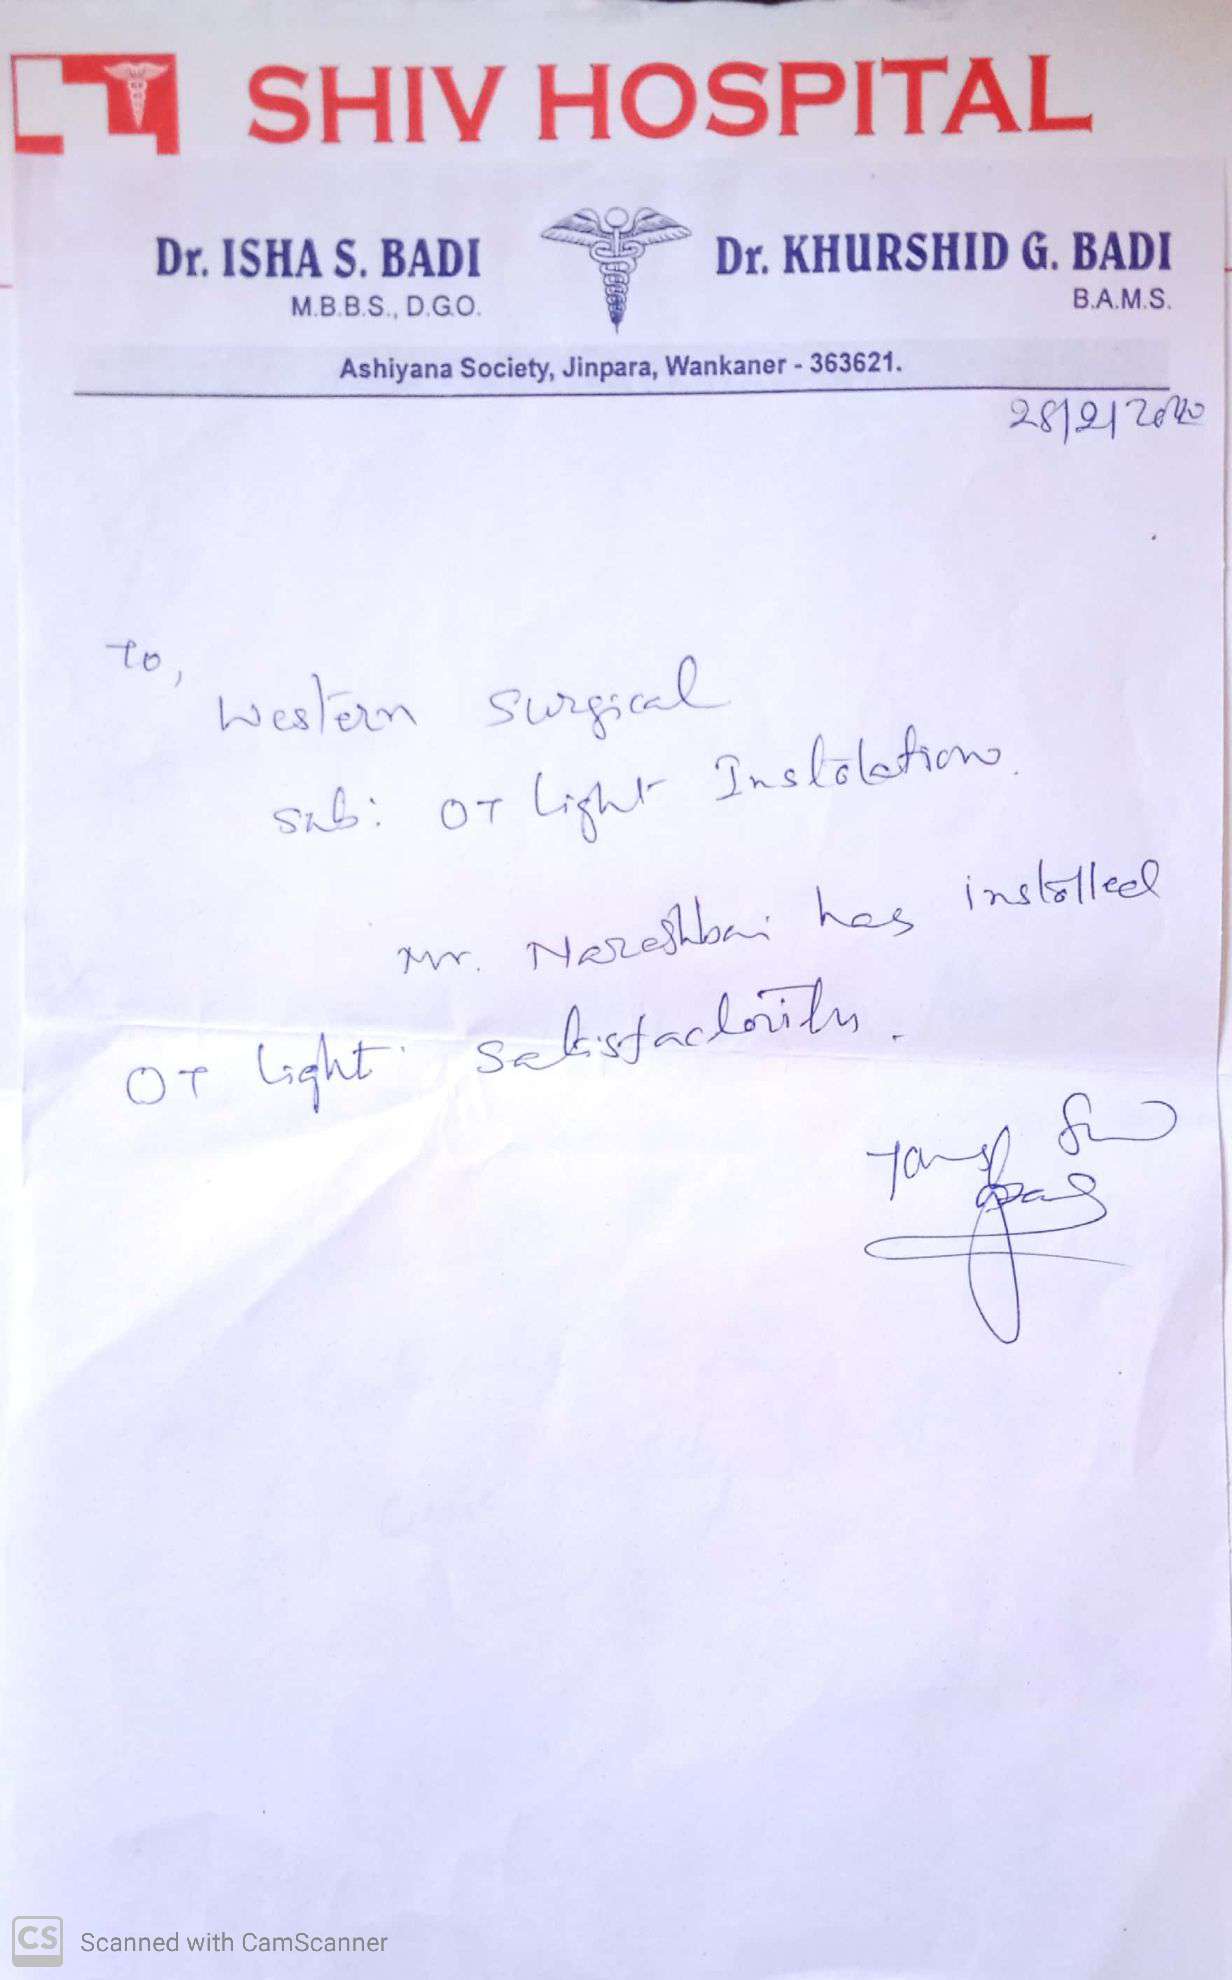 SHIV HOSPITAL
Dr. ISHA S. BADI
M.B.B.S., D.G.O.
Dr. KHURSHID G. BADI
B.A.M.S.
Ashiyana Society, Jinpara, Wankaner - 363621.
28/2/2020
To,
Western Surgical
Sub: OT Light Instalation.
Mr. Nareshbai has installed
OT Light satisfactorily.
CS Scanned with CamScanner